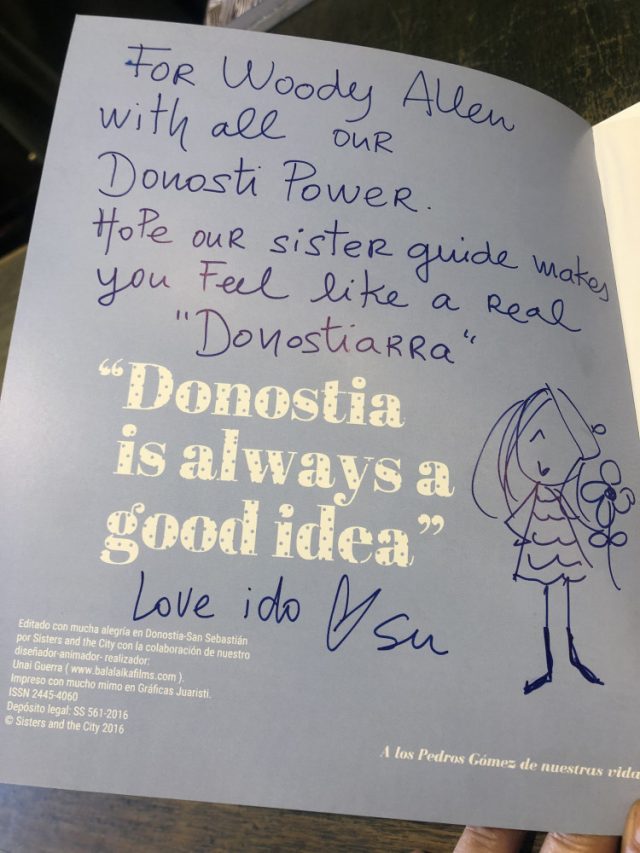 For Woody Allen
with all our
Donosti Power.
Hope our sister guide makes
you Feel like a Real
"Donostiarra"
“Donostia
is always a
good idea”
Love ido ♡ su
Editado con mucha alegría en Donostia-San Sebastián
por Sisters and the City con la colaboración de nuestro
diseñador-animador- realizador:
Unai Guerra ( www.balalaikafilms.com ).
Impreso con mucho mimo en Gráficas Juaristi.
ISSN 2445-4060
Depósito legal: SS 561-2016
© Sisters and the City 2016
A los Pedros Gómez de nuestras vida